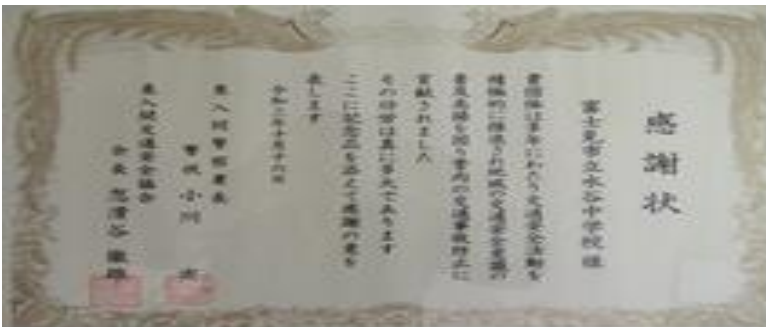 感謝状
富士見市立水谷中学校 様
貴団体は多年にわたり交通安全活動を
積極的に推進され地域の交通安全意識の
普及高揚を図り管内の交通事故防止に
貢献されました
その功労は真に多大であります
ここに記念品を添えて感謝の意を
表します
令和二年十月十六日
東入間警察署長
警視 小川
東入間交通安全協会
会長